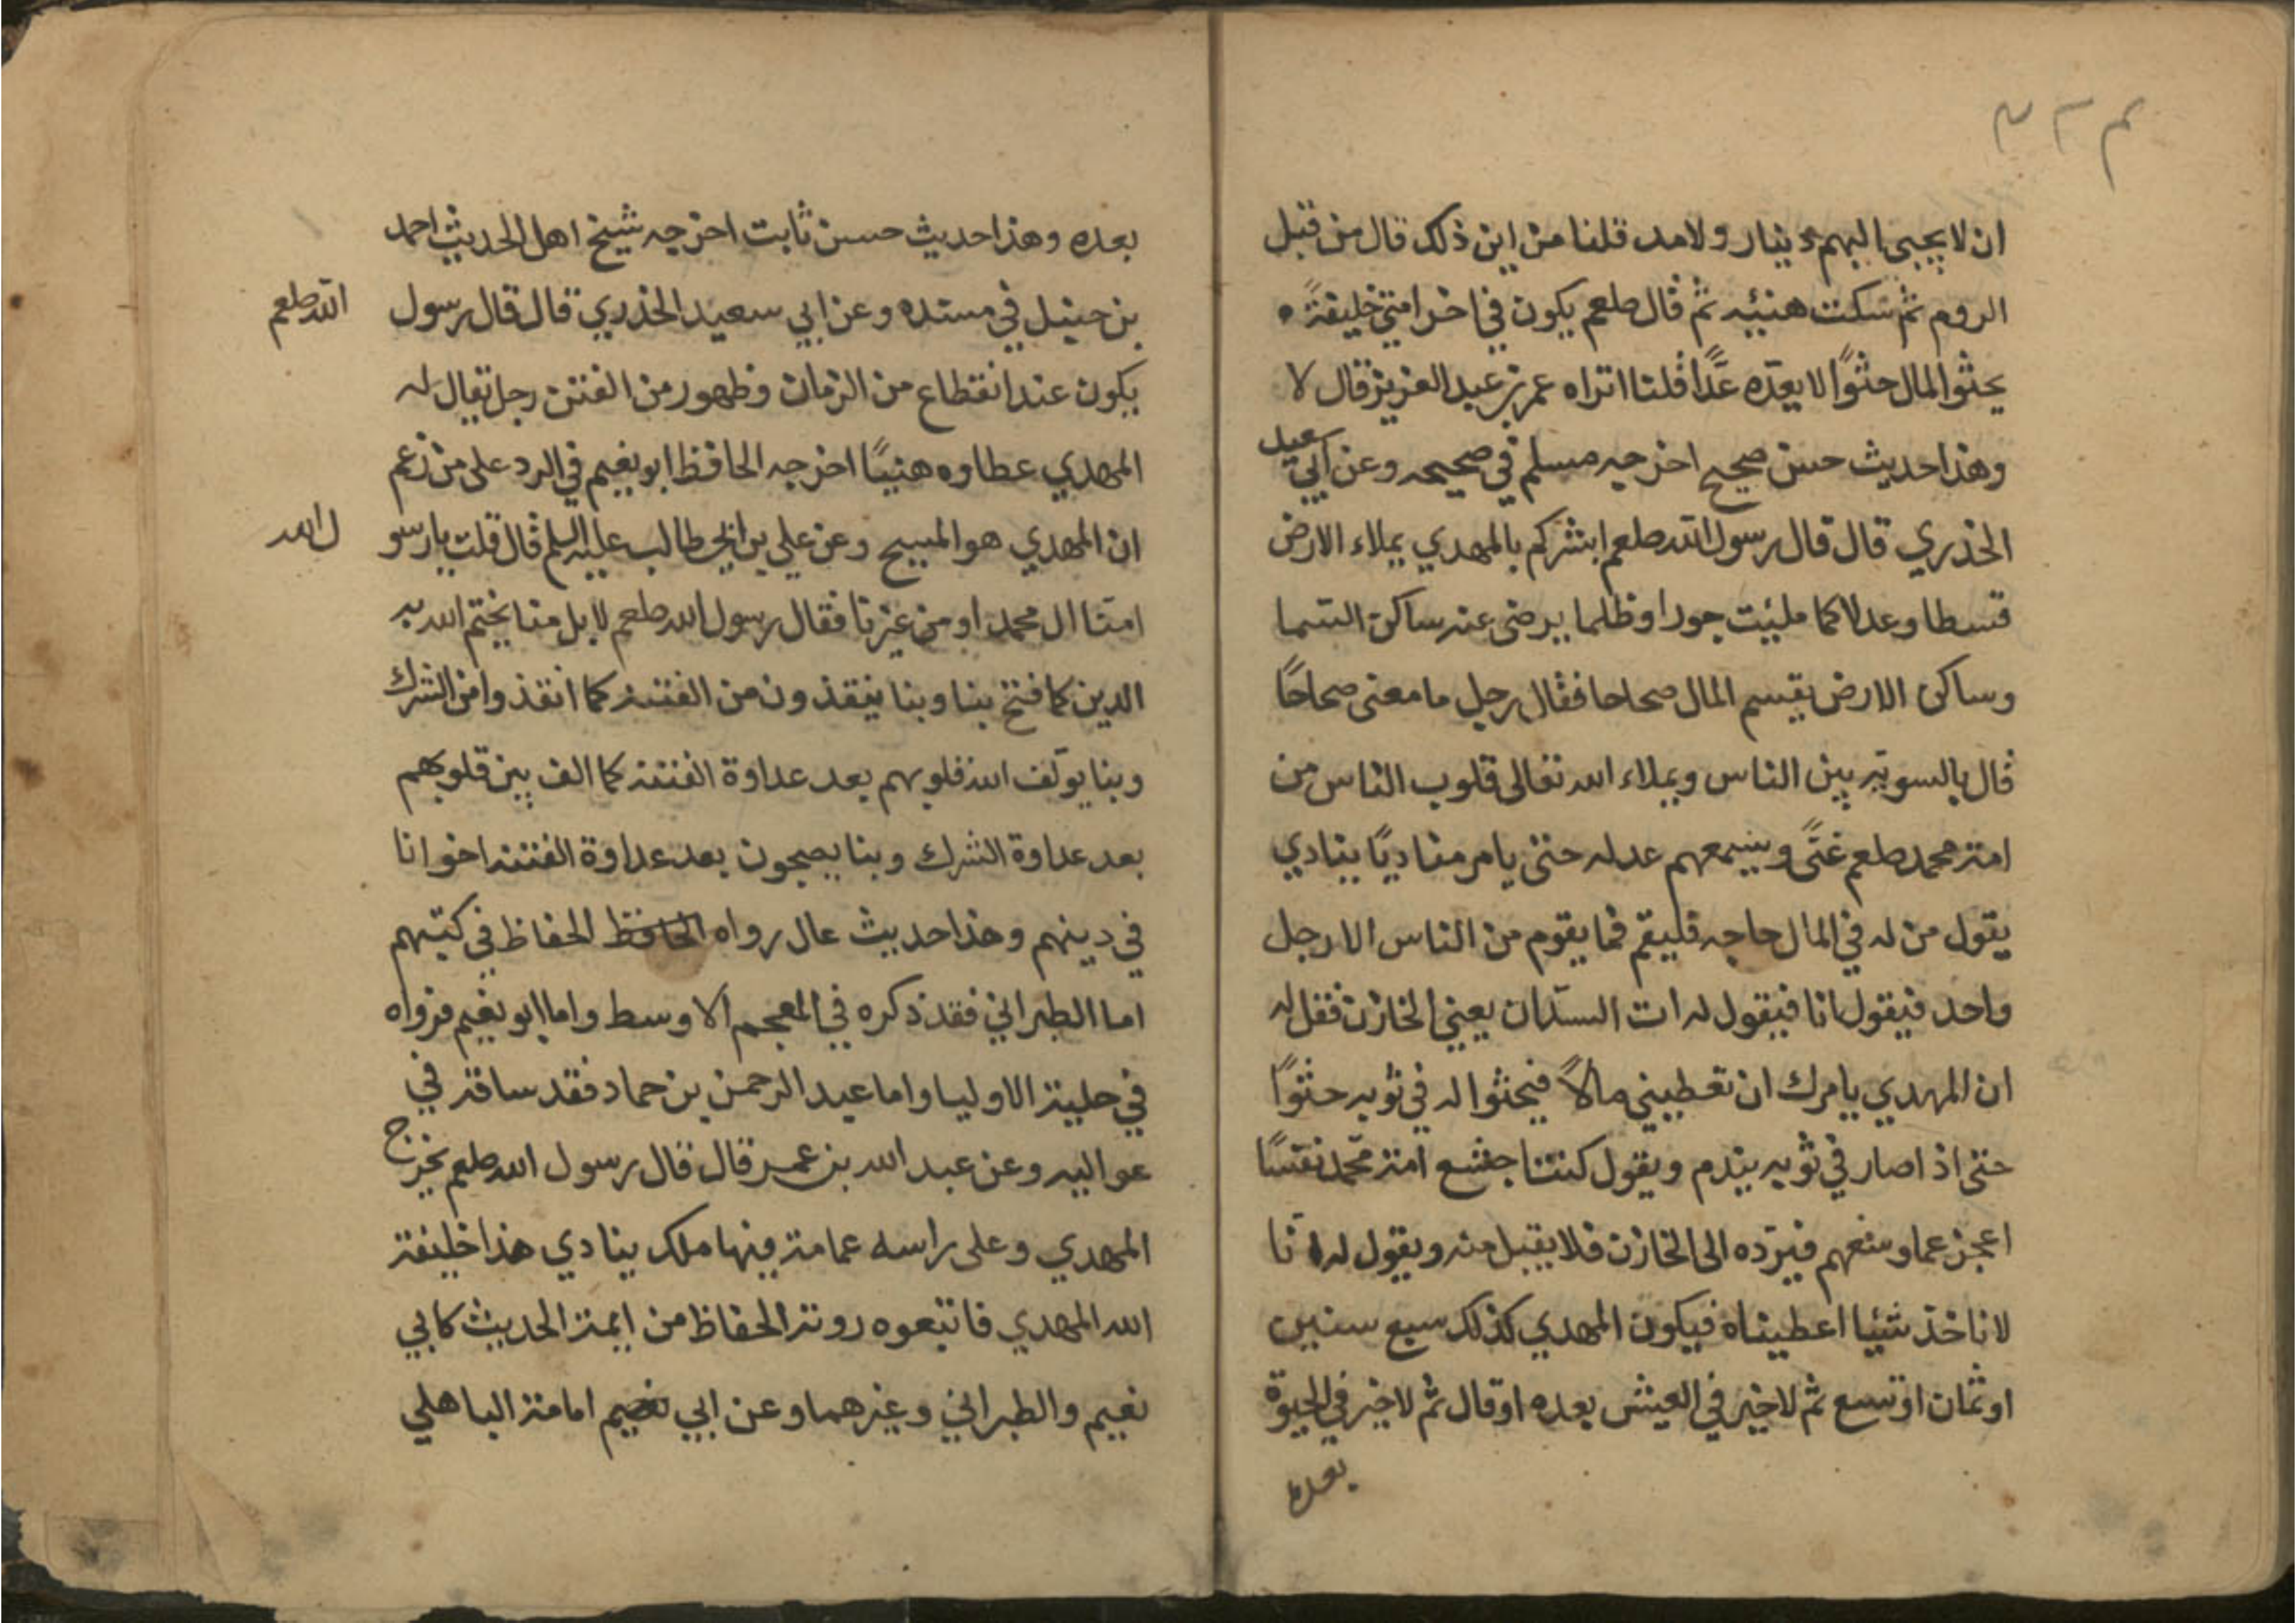 ان لا يجبى اليهم دينار ولا مد قلنا من اين ذلك قال من قبل
الروم ثم سكت هنيئه ثم قال صلعم يكون في اخر امتي خليفةً
يحثوا المال حثوًا لا يعدّه عدًّا قلنا اتراه عمر بن عبد العزيز قال لا
وهذا حديث حسن صحيح اخرجه مسلم في صحيحه وعن ابي سعيد
الخذري قال قال رسول الله صلعم ابشركم بالمهدي يملاء الارض
قسطا وعدلا كما ملئت جورا وظلما يرضى عنه ساكن السما
وساكن الارض يقسم المال صحاحا فقال رجل ما معنى صحاحًا
قال بالسوية بين الناس ويملاء الله تعالى قلوب الناس من
امة محمد صلعم غنًى ويسعهم عدله حتى يامر مناديًا ينادي
يقول من له في المال حاجه فليقم فما يقوم من الناس الا رجل
واحد فيقول انا فيقول له ات السدّان يعني الخازن فقل له
ان المهدي يامرك ان تعطيني مالاً فيحثوا له في ثوبه حثوًا
حتى اذا صار في ثوبه يندم ويقول كنت اجشع امة محمّد نفسًا
اعجز عما وسعهم فيردّه الى الخازن فلا يقبل منه ويقول له انّا
لا ناخذ شيئا اعطيناه فيكون المهدي كذلك سبع سنين
او ثمان او تسع ثم لا خير في العيش بعده او قال ثم لا خير في الحيوة
بعده
بعده وهذا حديث حسن ثابت اخرجه شيخ اهل الحديث احمد
بن حنبل في مسنده وعن ابي سعيد الخذري قال قال رسول الله صلعم
يكون عند انقطاع من الزمان وظهور من الفتن رجل يقال له
المهدي عطاوه هنيئًا اخرجه الحافظ ابو نعيم في الرد على من زعم
ان المهدي هو المسيح وعن علي بن ابي طالب عليه السلم قال قلت يا رسو ل الله
امنّا ال محمد او من غيرنا فقال رسول الله صلعم لا بل منا يختم الله به
الدين كما فتح بنا وبنا ينقذون من الفتنه كما انقذوا من الشرك
وبنا يولّف الله قلوبهم بعد عداوة الفتنه كما الف بين قلوبهم
بعد عداوة الشرك وبنا يصبحون بعد عداوة الفتنه اخوانا
في دينهم وهذا حديث عال رواه الحافظ الحفاظ في كتبهم
اما الطبراني فقد ذكره في المعجم الاوسط واما ابو نعيم فرواه
في حلية الاوليا واما عبد الرحمن بن حماد فقد ساقه في
عواليه وعن عبد الله بن عمر قال قال رسول الله صلعم يخرج
المهدي وعلى راسه عمامة فيها ملك ينادي هذا خليفة
الله المهدي فاتبعوه روته الحفاظ من ايمة الحديث كابي
نعيم والطبراني وغيرهما وعن ابي نعيم امامة الباهلي